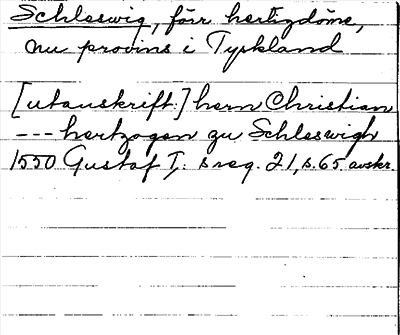 Schleswig, förr hertigdöme,
nu provins i Tyskland
[utanskrift:] hern Christian
--- hertzogen zu Schleswigh
1550 Gustaf I:s reg. 21, s. 65 avskr.